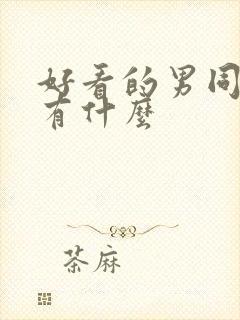 好看的男同
有什麼
茶麻